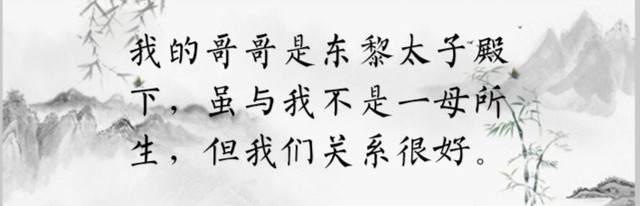 我的哥哥是东黎太子殿
下，虽与我不是一母所
生，但我们关系很好。